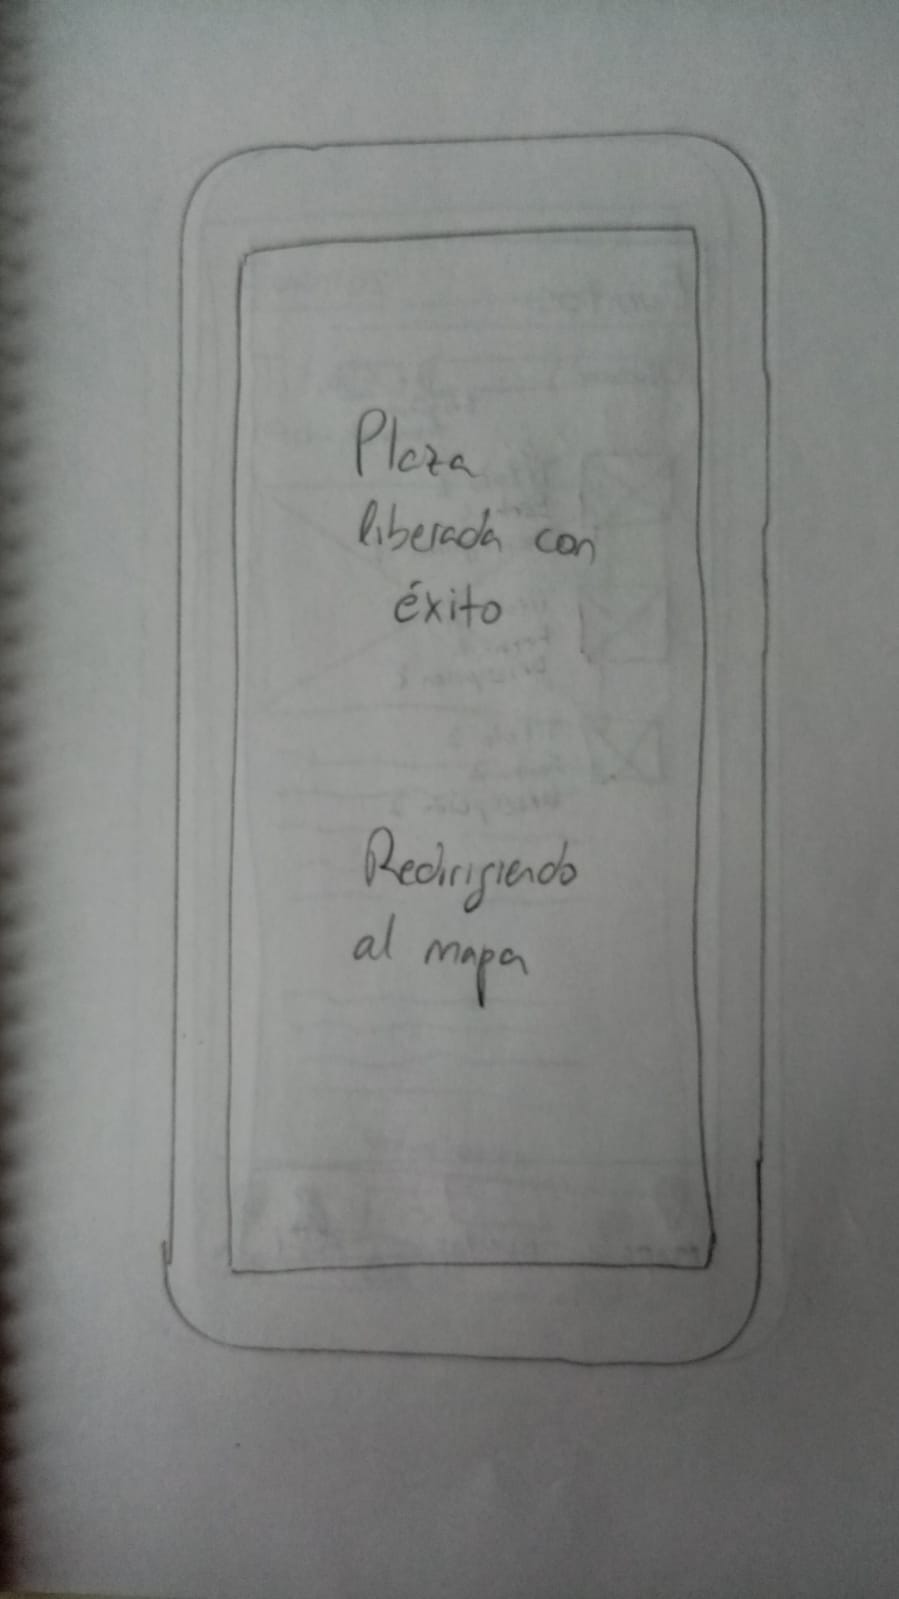 Plaza
liberada con
éxito
Redirigiendo
al mapa